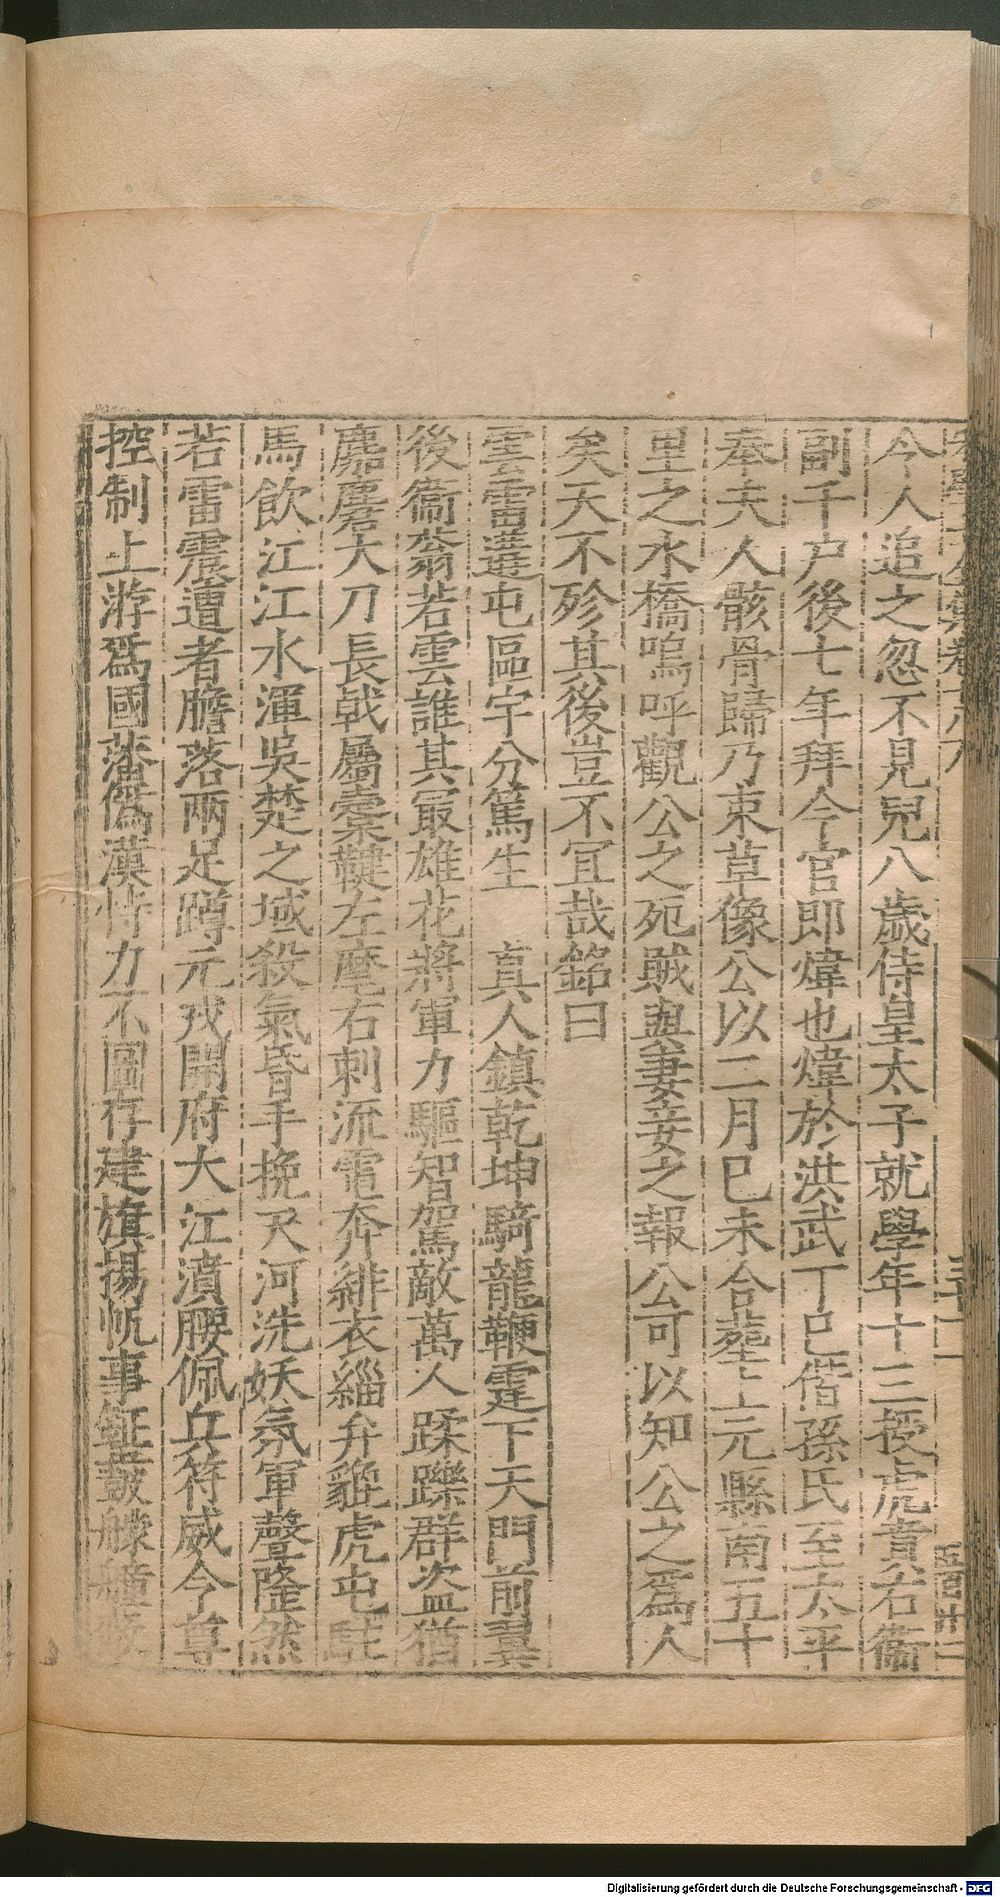 今人追之忽不見兒八歳侍皇太子就學年十三授虎賁右衞
副千户後七年拜今官即煒也煒於洪武丁巳偕孫氏至太平
奉夫人骸骨歸乃束草像公以二月巳未合塟上元縣南五十
里之水橋嗚呼觀公之死賊與妻妾之報公可以知公之爲人
矣天不殄其後豈不冝哉銘曰
雲雷選屯區宇分篤生　真人鎮乾坤騎龍鞭霆下天門前翼
後衞蓊若雲誰其冣雄花將軍力驅智駕敵萬人蹂躒群盗猶
麃麏大刀長戟屬櫜鞬左麾右刺流電奔緋衣緇弁貔虎屯駐
馬飲江江水渾吳楚之域殺氣昏手挽天河洗妖氛軍聲隆然
若雷震遭者膽落兩足蹲元戎開府大江濆腰佩兵符威令尊
控制上游爲國藩僞漢恃力不圖存建旗揚帆事鉦鼓艨艟
Digitalisierung gefördert durch die Deutsche Forschungsgemeinschaft - DFG